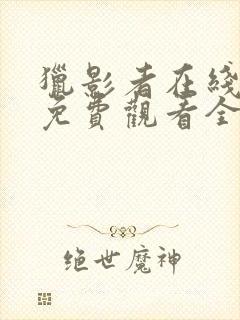 獵影者在綫
免費觀看全
绝世魔神